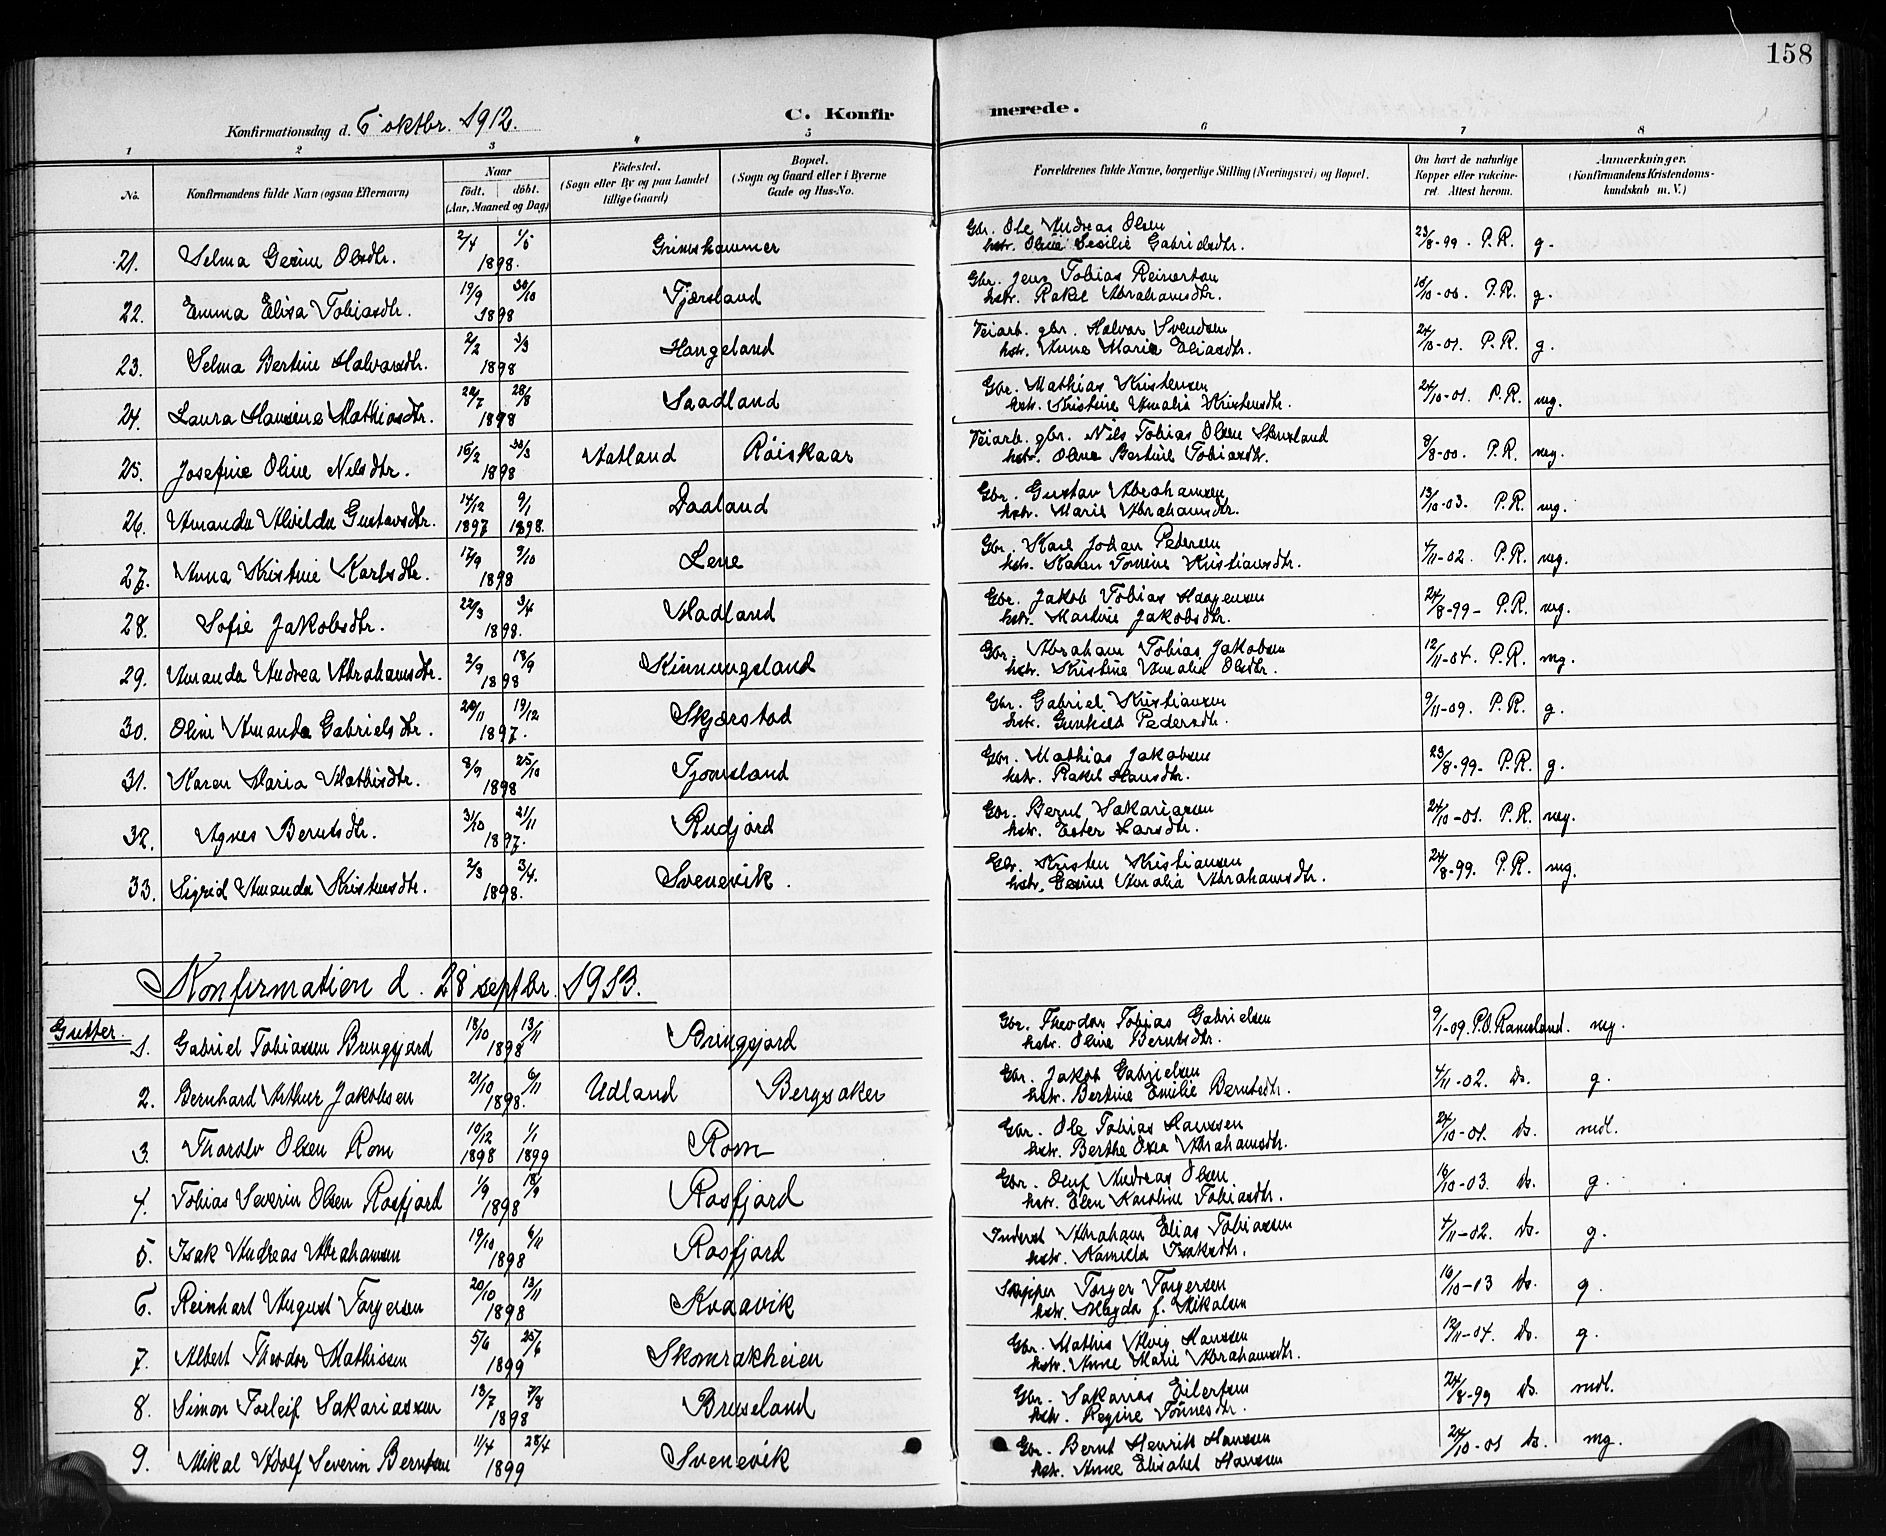 158
Konfirmationsdag d. 6 oktbr. 1912.
C. Konfir merede.
1 2 3 4 5 6 7 8
No. Konfirmandens fulde Navn (ogsaa Efternavn) Naar födt. döbt. (Aar, Maaned og Dag) Födested. (Sogn eller By og paa Landet tillige Gaard) Bopæl. (Sogn og Gaard eller i Byerne Gade og Hus-No. Forældrenes fulde Navne, borgerlige Stilling (Næringsvei) og Bopæl. Om havt de naturlige Kopper eller vakcineret. Attest herom. Anmerkninger. (Konfirmandens Kristendomskundskab m. V.)
21. Selma Gesine Olsdtr. 2/4 1/5 1898. Grimshammer Gbr. Ole Andreas Olsen
hstr. Oline Cesilie Gabrielsdtr. 23/8-99. P.R. g.
22. Emma Elisa Tobiasdtr. 19/9 30/10 1898 Fjærsland Gbr. Jens Tobias Reinertsen
hstr. Rakel Abrahamsdtr. 16/10-00. P.R. g.
23. Selma Bertine Halvorsdtr. 2/2 3/3 1898 Haugeland Veiarb. gbr. Halvor Svendsen
hstr. Anne Maria Eliasdtr. 24/10-01. P.R. g.
24. Laura Hansine Mathiasdtr. 20/7 28/8 1898 Saadland Gbr. Mathias Kristensen
hstr. Kristine Amalia Kristensdtr. 24/10-01. P.R. mg.
25. Josefine Oline Nilsdtr. 15/2 30/3 1898 Vatland Röiskaar Veiarb. gbr. Nils Tobias Olsen Stensland
hstr. Oline Bertine Tobiasdtr. 9/8-00. P.R. mg.
26. Amanda Alvilda Gustavsdtr. 14/12 1897 9/1 1898. Daaland Gbr. Gustav Abrahamsen
hstr. Marie Abrahamsdtr. 13/10-03. P.R. mg.
27. Anna Kristine Karlsdtr. 17/9 9/10 1898 Lene Gbr. Karl Johan Pedersen
hstr. Karen Tomine Kristiansdtr. 4/11-02. P.R. mg.
28. Sofie Jakobsdtr. 22/3 3/4 1898. Hadland Gbr. Jakob Tobias Haagensen
hstr. Martine Jakobsdtr. 24/8-99- P.R. mg.
29. Amanda Andrea Abrahamsdtr. 2/9 18/9 1898 Kinnungsland Gbr. Abraham Tobias Jakobsen
hstr. Kristine Amalia Olsdtr. 12/11-04. P.R. mg.
30. Oline Amanda Gabrielsdtr. 20/11 19/12 1897. Skjærstad Gbr. Gabriel Kristiansen
hstr. Gunhild Pedersdtr. 9/11-09. P.R. g.
31. Karen Maria Mathisdtr. 8/9 25/10 1898 Tjomsland Gbr. Mathias Jakobsen
hstr. Rakel Hansdtr. 23/8-99- P.R. g.
32. Agnes Berntsdtr. 31/10 21/11 1897. Rudjord Gbr. Bernt Sakariasen
hstr. Ester Larsdtr. 24/10-01. P.R. mg.
33. Sigrid Amanda Kristensdtr. 2/3 3/4. 1898. Svenevik. Gbr. Kristen Kristiansen
hstr. Gesine Amalia Abrahamsdtr. 24/8-99. P.R. mg.
Konfirmation d. 28 septbr. 1913.
Gutter.
1. Gabriel Tobiassen Bringsjord 18/10 13/11 1898 Bringsjord Gbr. Theodor Tobias Gabrielsen
hstr. Oline Berntsdtr. 9/1-09. P.O. Ramsland. mg.
2. Bernhard Arthur Jakobsen 21/10 6/11 1898. Udland Bergsaker Gbr. Jakob Gabrielsen
hstr. Bertine Emilie Berntsdtr. 4/11-02. Do. g.
3. Thorolv Olsen Rom 10/12 1898 1/1 1899 Rom Gbr. Ole Tobias Hanssen
hstr. Berthe Abrahamsdtr. 24/10-01. Do. mdl.
4. Tobias Severin Olsen Rosfjord 1/9 18/9 1898 Rosfjord Gbr. Oluf Andreas Olsen.
hstr. Elen Karoline Tobiasdtr. 16/10-03. Do. g.
5. Isak Andreas Abrahamsen 19/10 6/11 1898 Rosfjord Inderst Abraham Elias Tobiassen
hstr. Kamilla Isaksdtr. 4/11-02. Do. g.
6. Reinhart August Torgersen 20/10 13/11 1898 Kvaavik Skipper Torger Torgersen
hstr. Magda f. Mikalsen 16/10-03 Do. g.
7. Albert Theodor Mathissen 5/6 25/6 1899 Skomrakheien Gbr. Mathis Alvig Hanssen
hstr. Anne Marie Abrahamsdtr. 12/11-04. Do. g.
8. Simon Torleif Sakariassen 13/7 7/8 1898 Bruseland Gbr. Sakarias Eilertsen
hstr. Regine Tönnesdtr. 24/8-99 Do. mdl.
9. Mikal Adolf Severin Berntsen 11/4 28/4 1899 Svenevik Gbr. Bernt Henrik Hanssen
hstr. Anne Elisabet Hanssen 24/10-01 Do. mg.